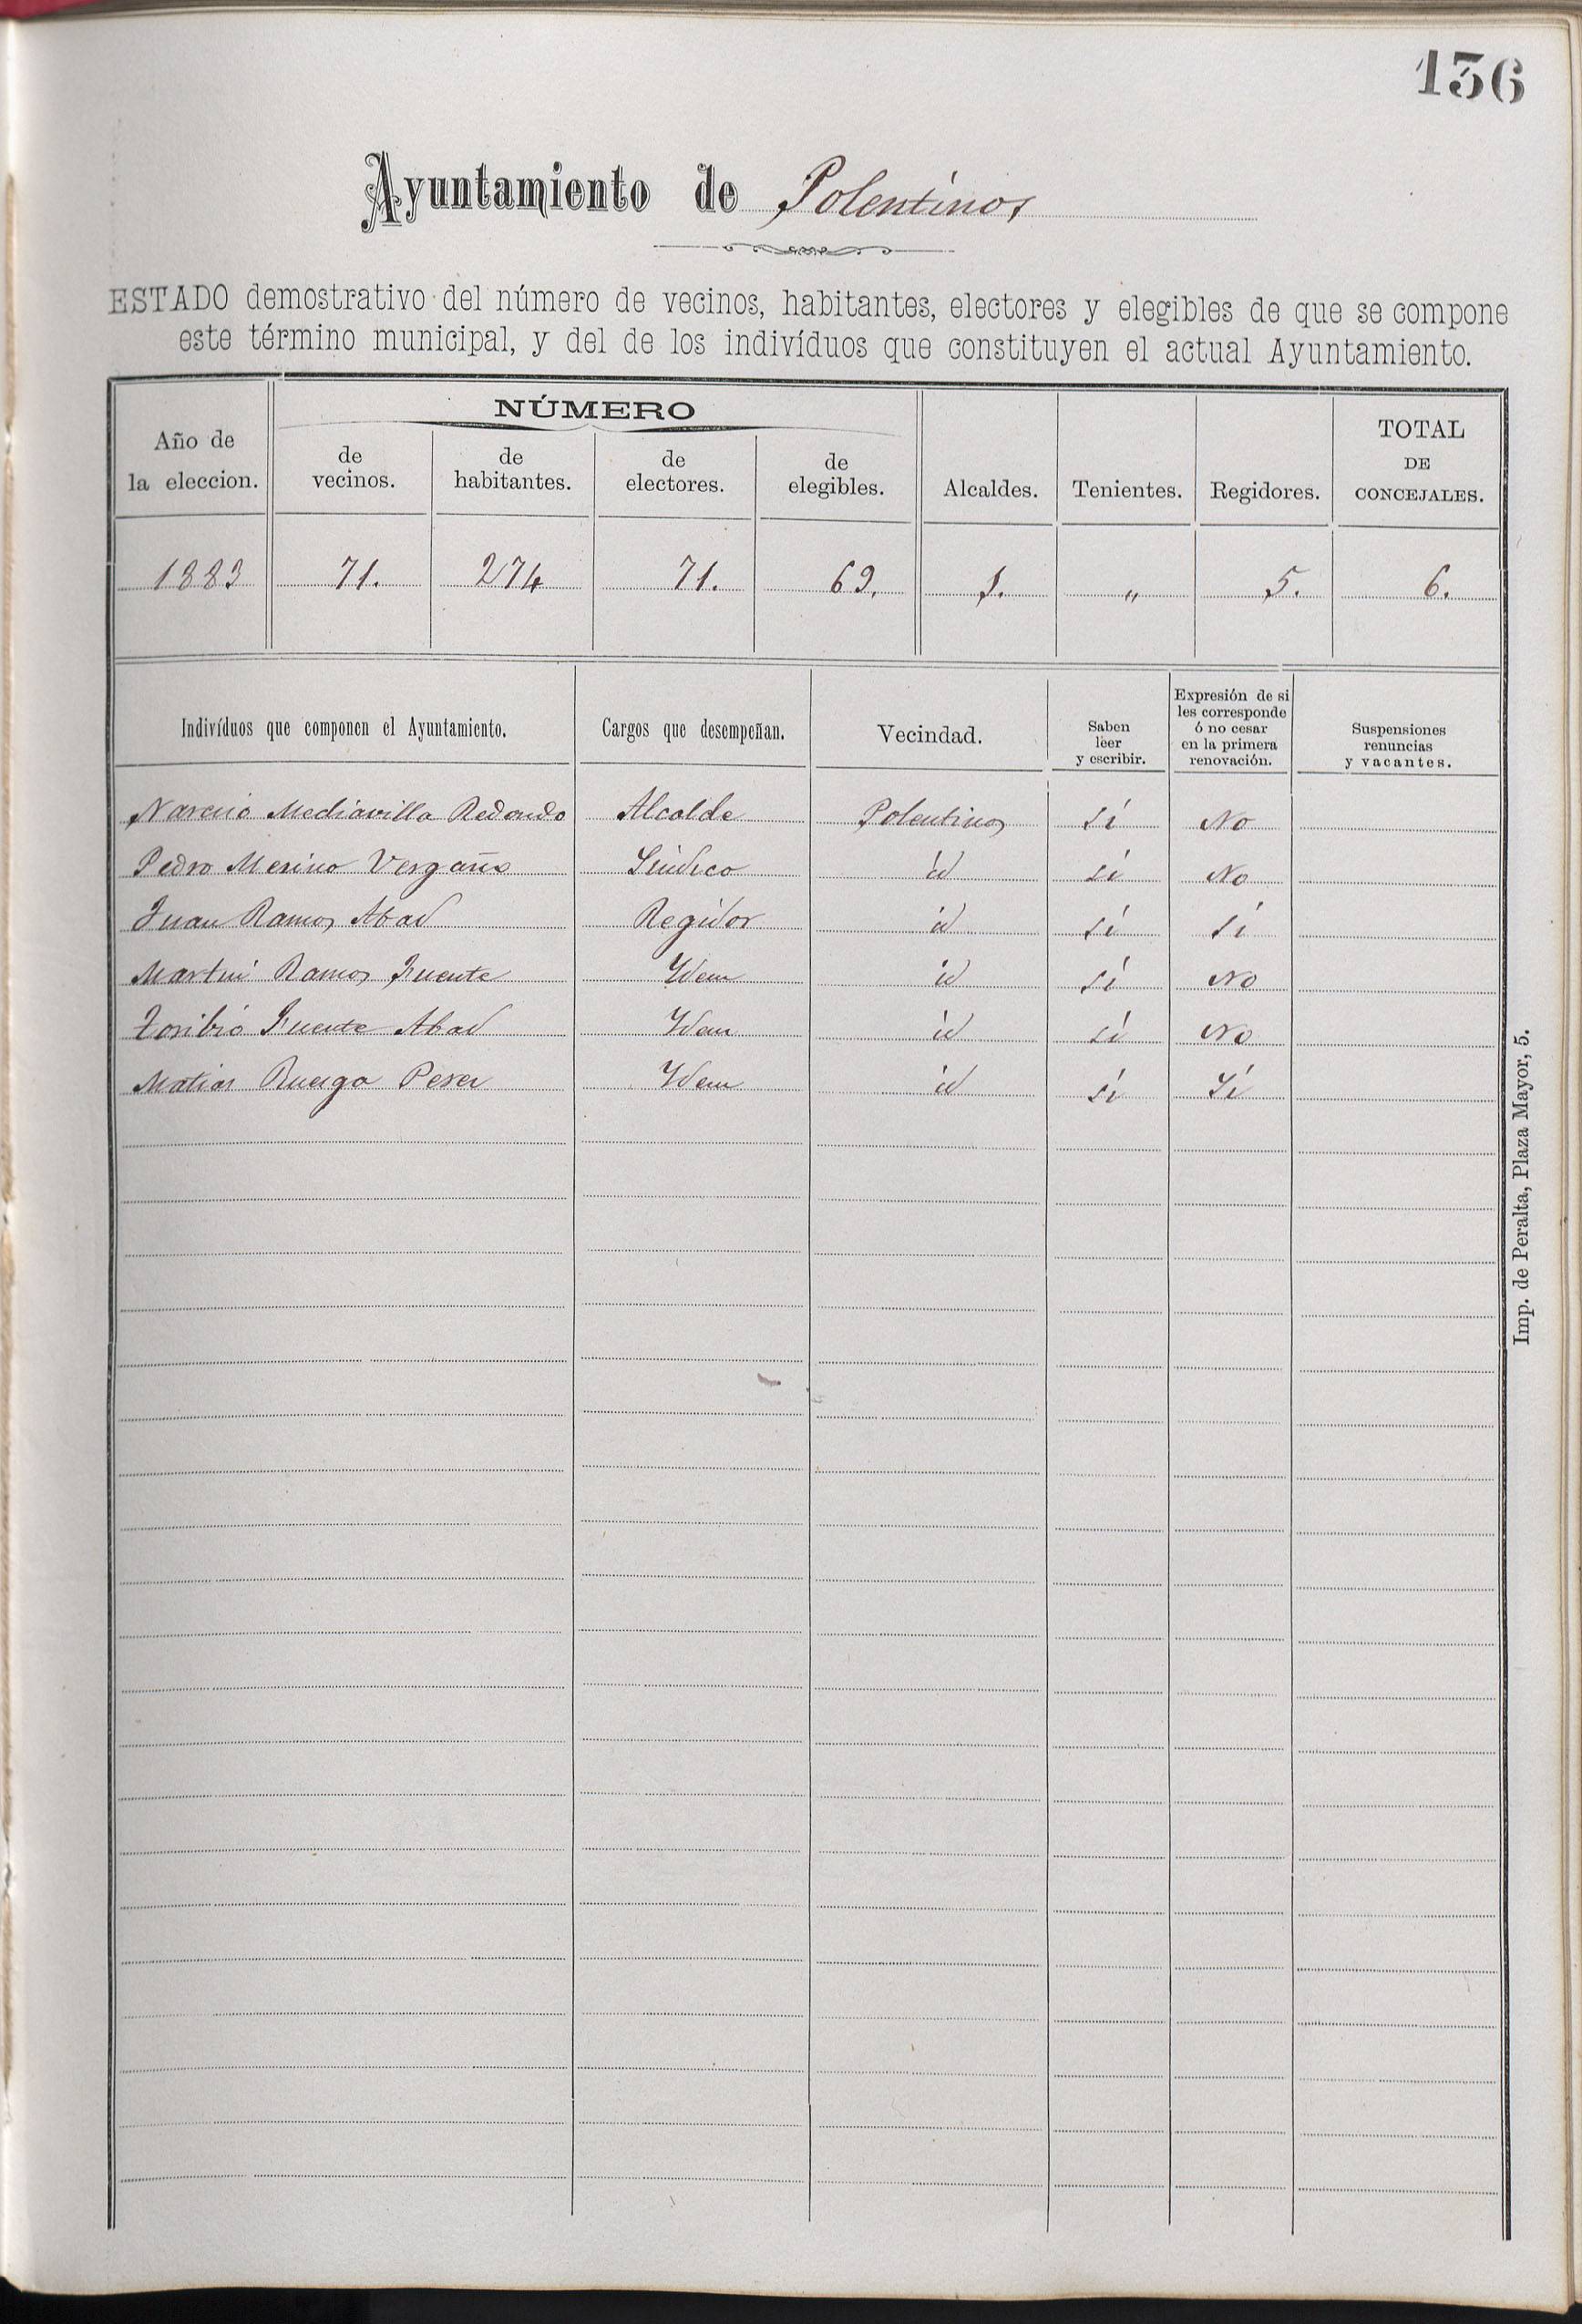 136
Ayuntamiento de Polentinos
ESTADO demostrativo del número de vecinos, habitantes, electores y elegibles de que se compone
este término municipal, y del de los indivíduos que constituyen el actual Ayuntamiento.
Año de la eleccion. NÚMERO de vecinos. de habitantes. de electores. de elegibles. Alcaldes. Tenientes. Regidores. TOTAL DE CONCEJALES.
1883 71. 274 71. 69. 1. " 5. 6.
Indivíduos que componen el Ayuntamiento. Cargos que desempeñan. Vecindad. Saben leer y escribir. Expresión de si les corresponde ó no cesar en la primera renovación. Suspensiones renuncias y vacantes.
Narciso Mediavilla Redondo Alcalde Polentinos sí No
Pedro Merino Vergaño Síndico id sí No
Juan Ramos Abad Regidor id sí sí
Martin Ramos Fuente Ydem id sí No
Toribio Fuente Abad Ydem id sí No
Matias Ruesga Ydem id sí Sí
Imp. de Peralta, Plaza Mayor, 5.